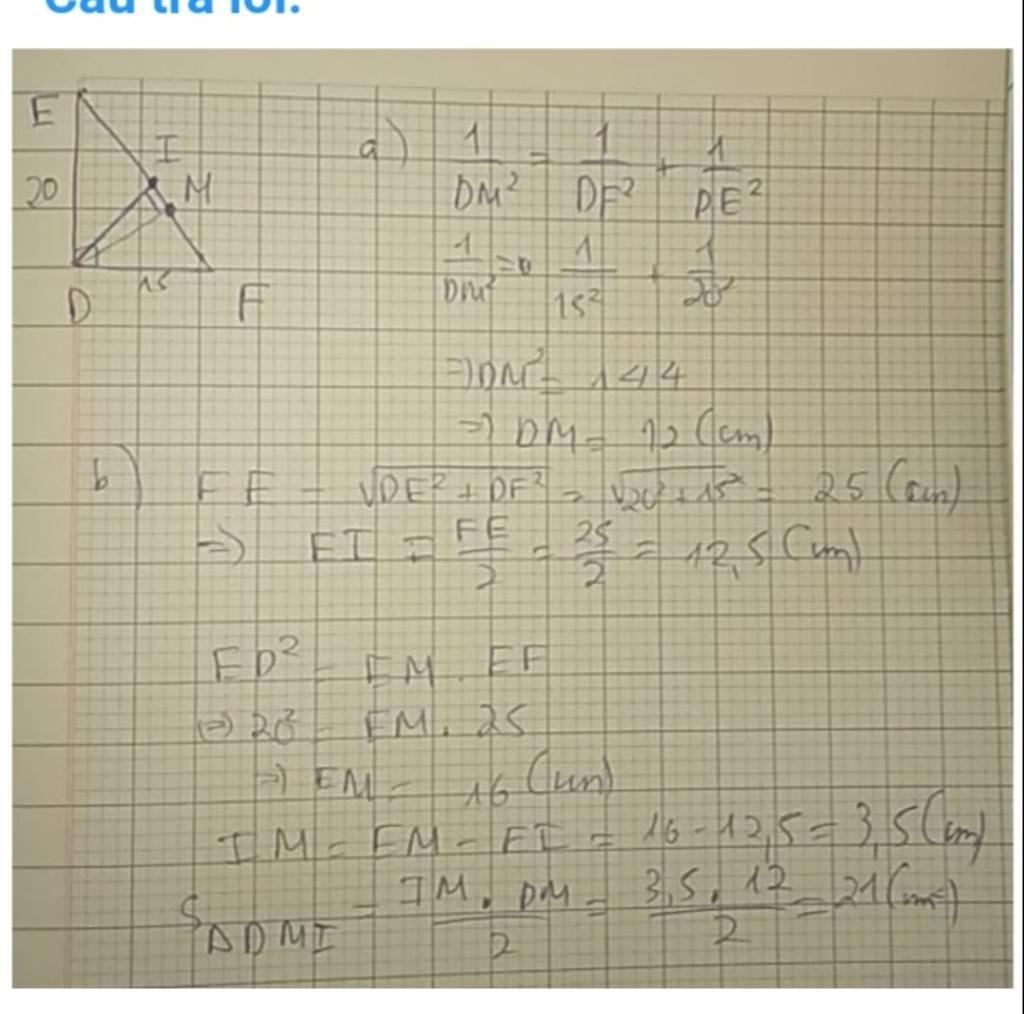 Câu trả lời:
E
I
20
M
D
15
F
a) 1/DM² = 1/DF² + 1/DE²
1/DM² = 1/15² + 1/20²
=> DM² = 144
=> DM = 12 (cm)
b) FE = √DE² + DF² = √20² + 15² = 25 (cm)
=> EI = FE/2 = 25/2 = 12,5 (cm)
ED² = EM . EF
(=) 20² = EM . 25
=> EM = 16 (cm)
IM = EM - EI = 16 - 12,5 = 3,5 (cm)
S ΔDMI = IM . DM/2 = 3,5 . 12/2 = 21 (cm²)